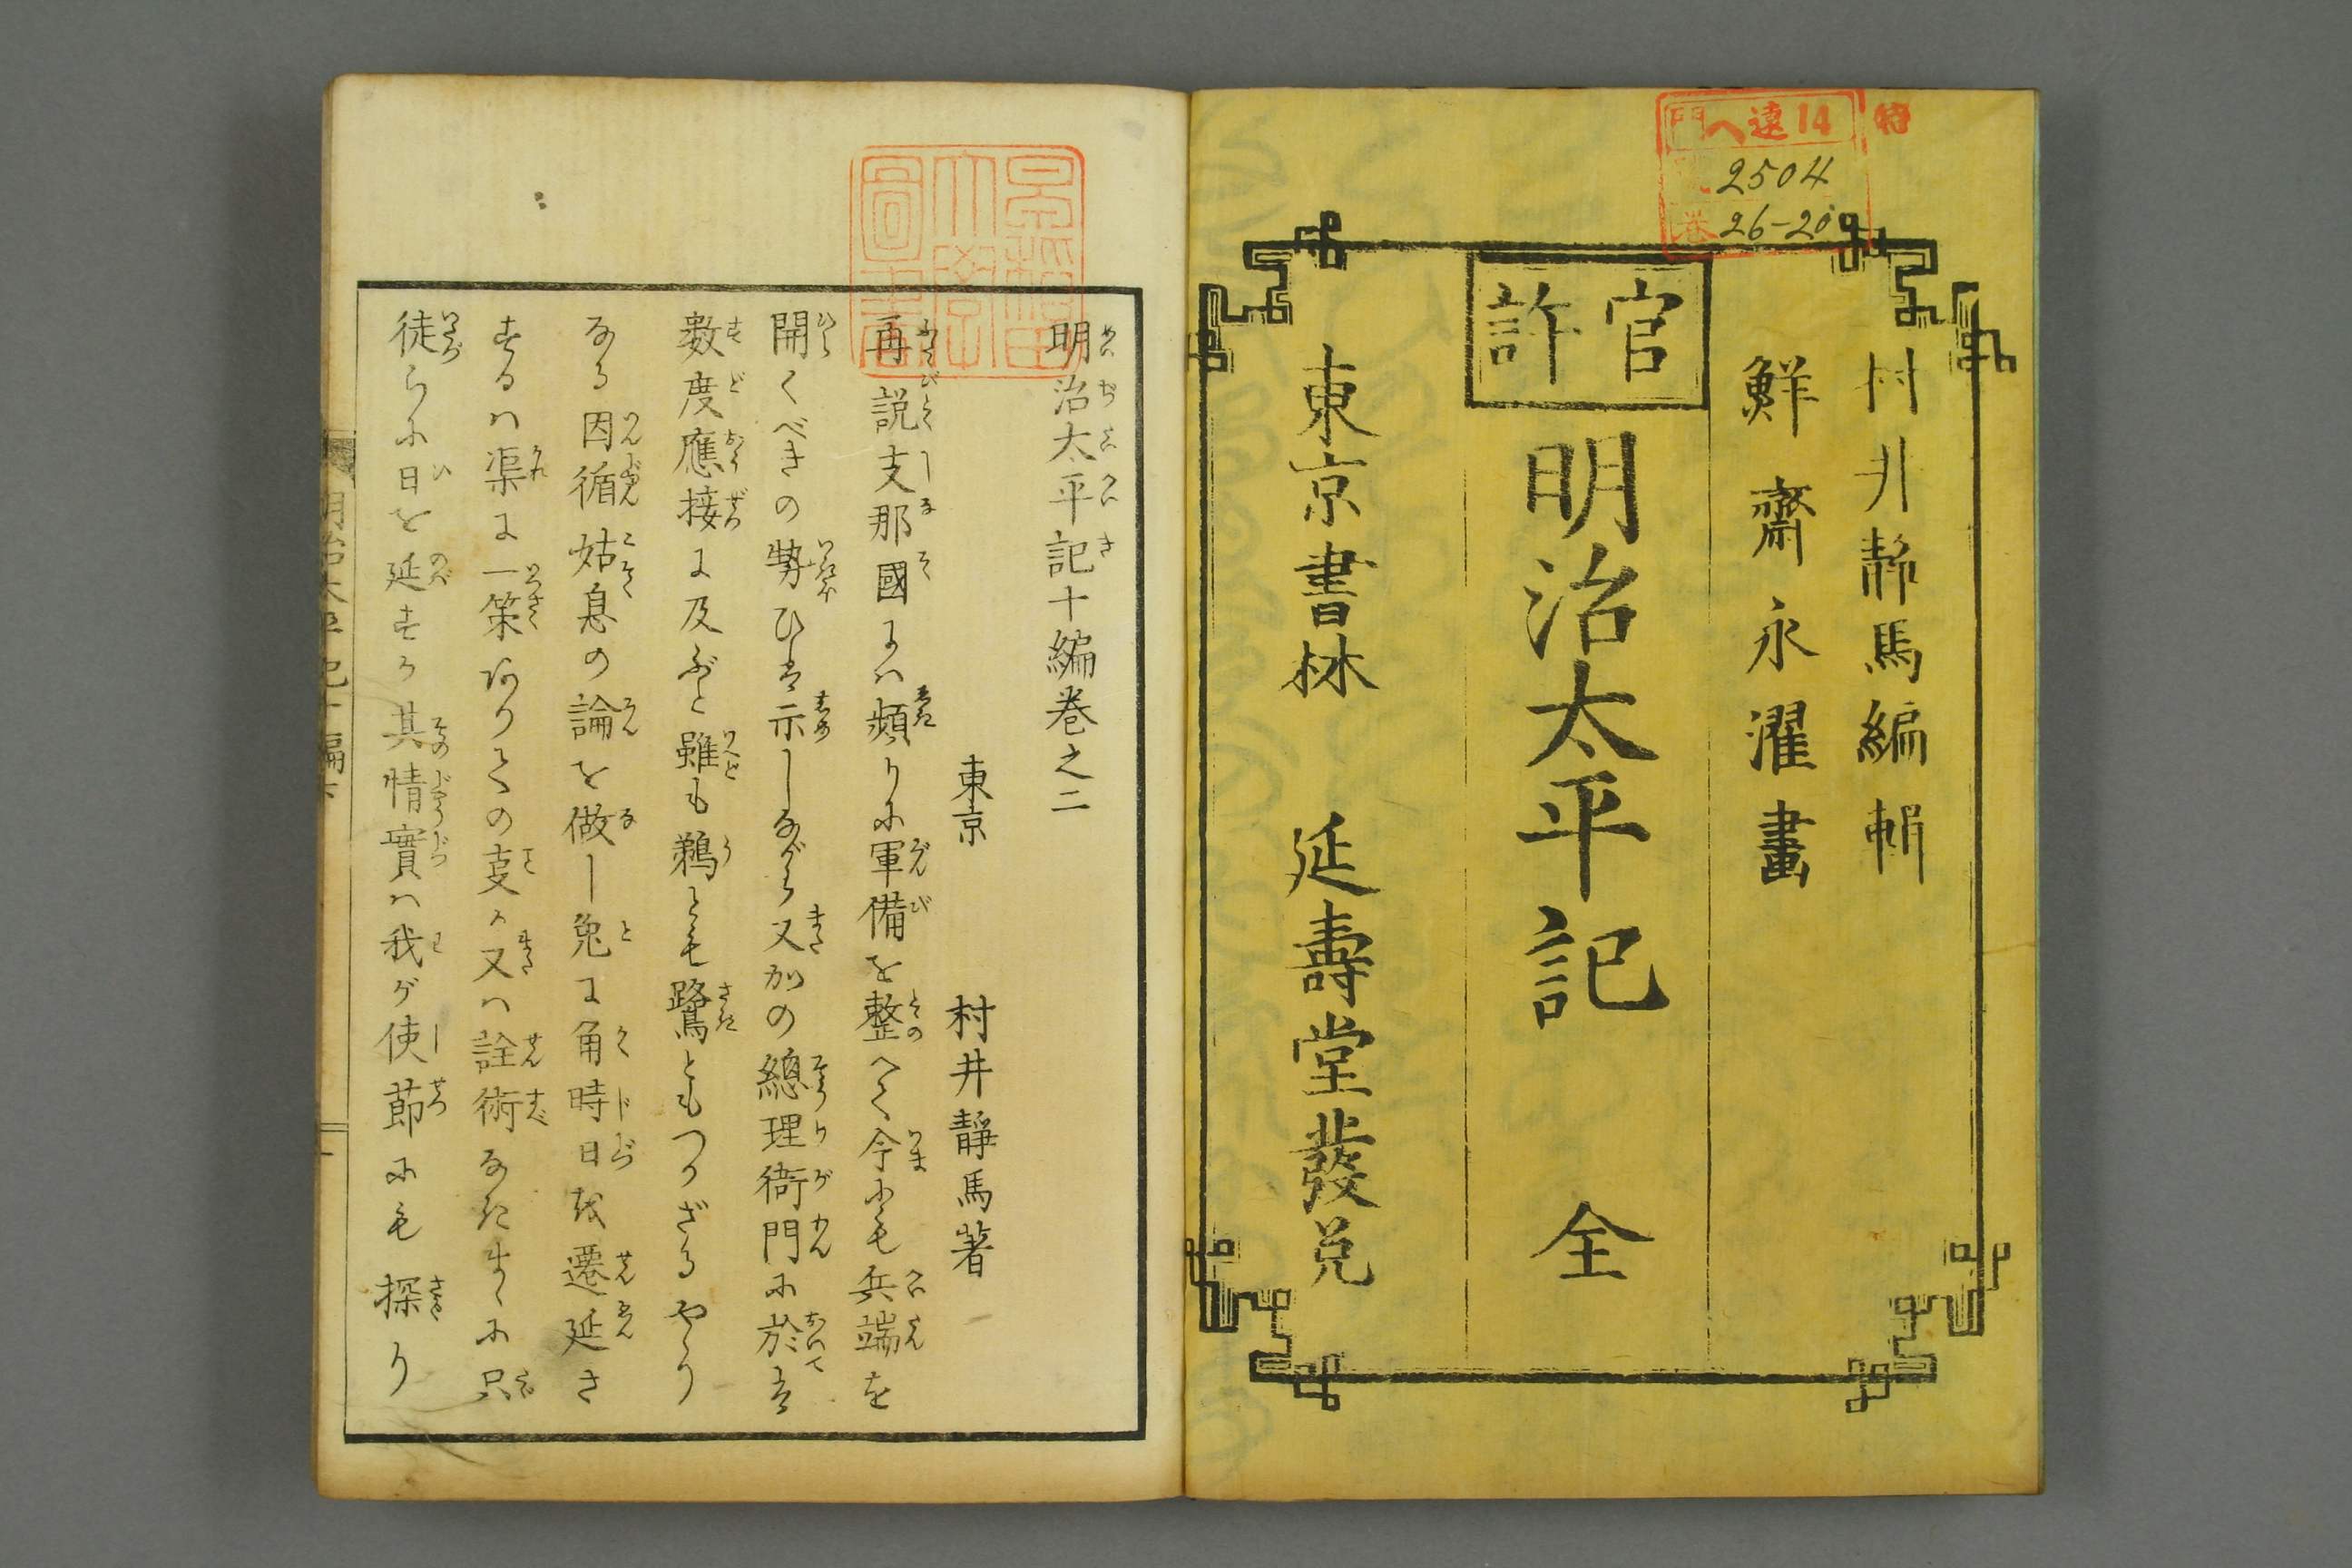 特
門 へ遠14
號 2504
巻 26-20
村井靜馬編輯
鮮齋永濯畫
官許
明治太平記 全
東京書林 延壽堂發兌
早稲田大學圖書
明治太平記十編巻之二
東京 村井靜馬著
再説支那國にハ頻りに軍備を整へて今にも兵端を
開くべきの勢ひを示しながら又加の總理衙門に於を
數度應接に及ぶと雖も鵜とも鷺ともつかざるやうり
なる因循姑息の論を做し兎に角時日を遷延さ
するハ渠に一策ありての支か又ハ詮術なきまゝに只
徒らに日を延するか其情實ハ我が使節にも探り
明治太平記十編下